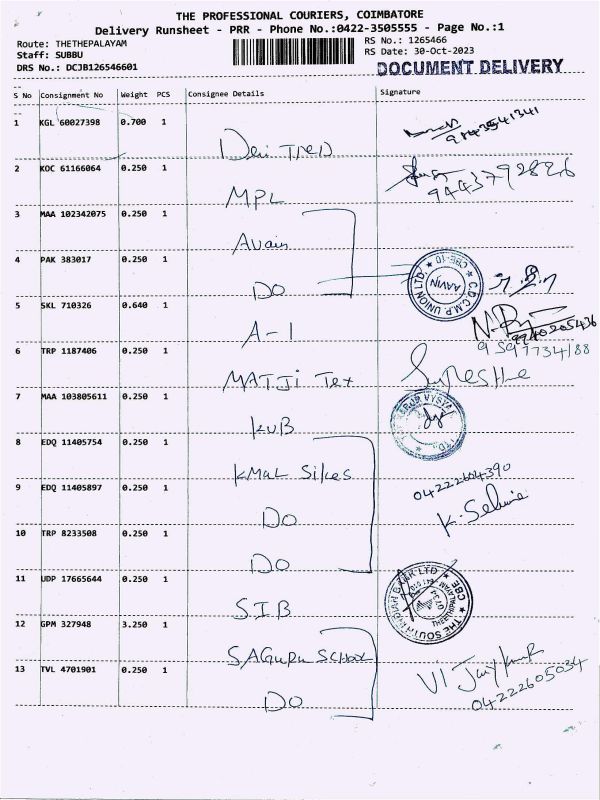 THE PROFESSIONAL COURIERS, COIMBATORE
Delivery Runsheet - PRR - Phone No.:0422-3505555 - Page No.:1
Route: THETHEPALAYAM RS No.: 1265466
Staff: SUBBU RS Date: 30-Oct-2023
DRS No.: DCJB126546601 DOCUMENT DELIVERY
S No Consignment No Weight PCS Consignee Details Signature
1 KGL 60027398 0.700 1
9143541341
2 KOC 61166064 0.250 1
MPL 9443792826
3 MAA 102342075 0.250 1
Avain
4 PAK 383017 0.250 1
DO C.D.C.M.P. UNION LTD CBE-10 AAVIN
5 SKL 710326 0.640 1
A-1 9940205436
9597734188
6 TRP 1187406 0.250 1
MATJI Tex Suresh
7 MAA 103805611 0.250 1
KUB
8 EDQ 11405754 0.250 1
KMAL Silks 04222604390
9 EDQ 11405897 0.250 1
DO
10 TRP 8233508 0.250 1
DO
11 UDP 17665644 0.250 1
S.I.B THE SOUTH INDIAN BANK LTD CBE THEETHIPALAYAM
12 GPM 327948 3.250 1
SAGURU SCHOOL
13 TVL 4701901 0.250 1
DO 04222605034